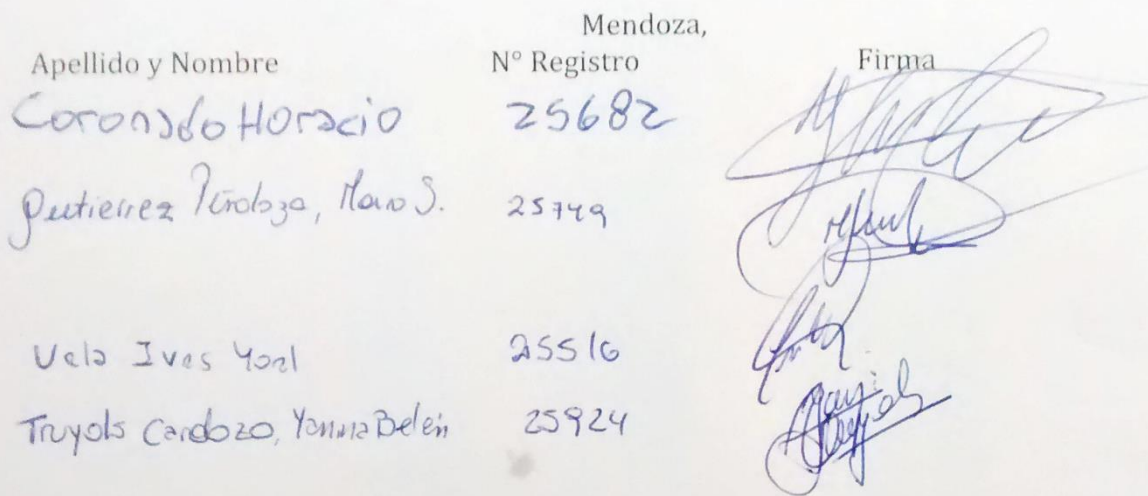 Mendoza,
Apellido y Nombre N° Registro Firma
Coronado Horacio 25682
Gutierrez Peñaloza, Mario S. 25749
Vela Ives Yoel 25516
Truyols Cardozo, Yanina Belén 25924